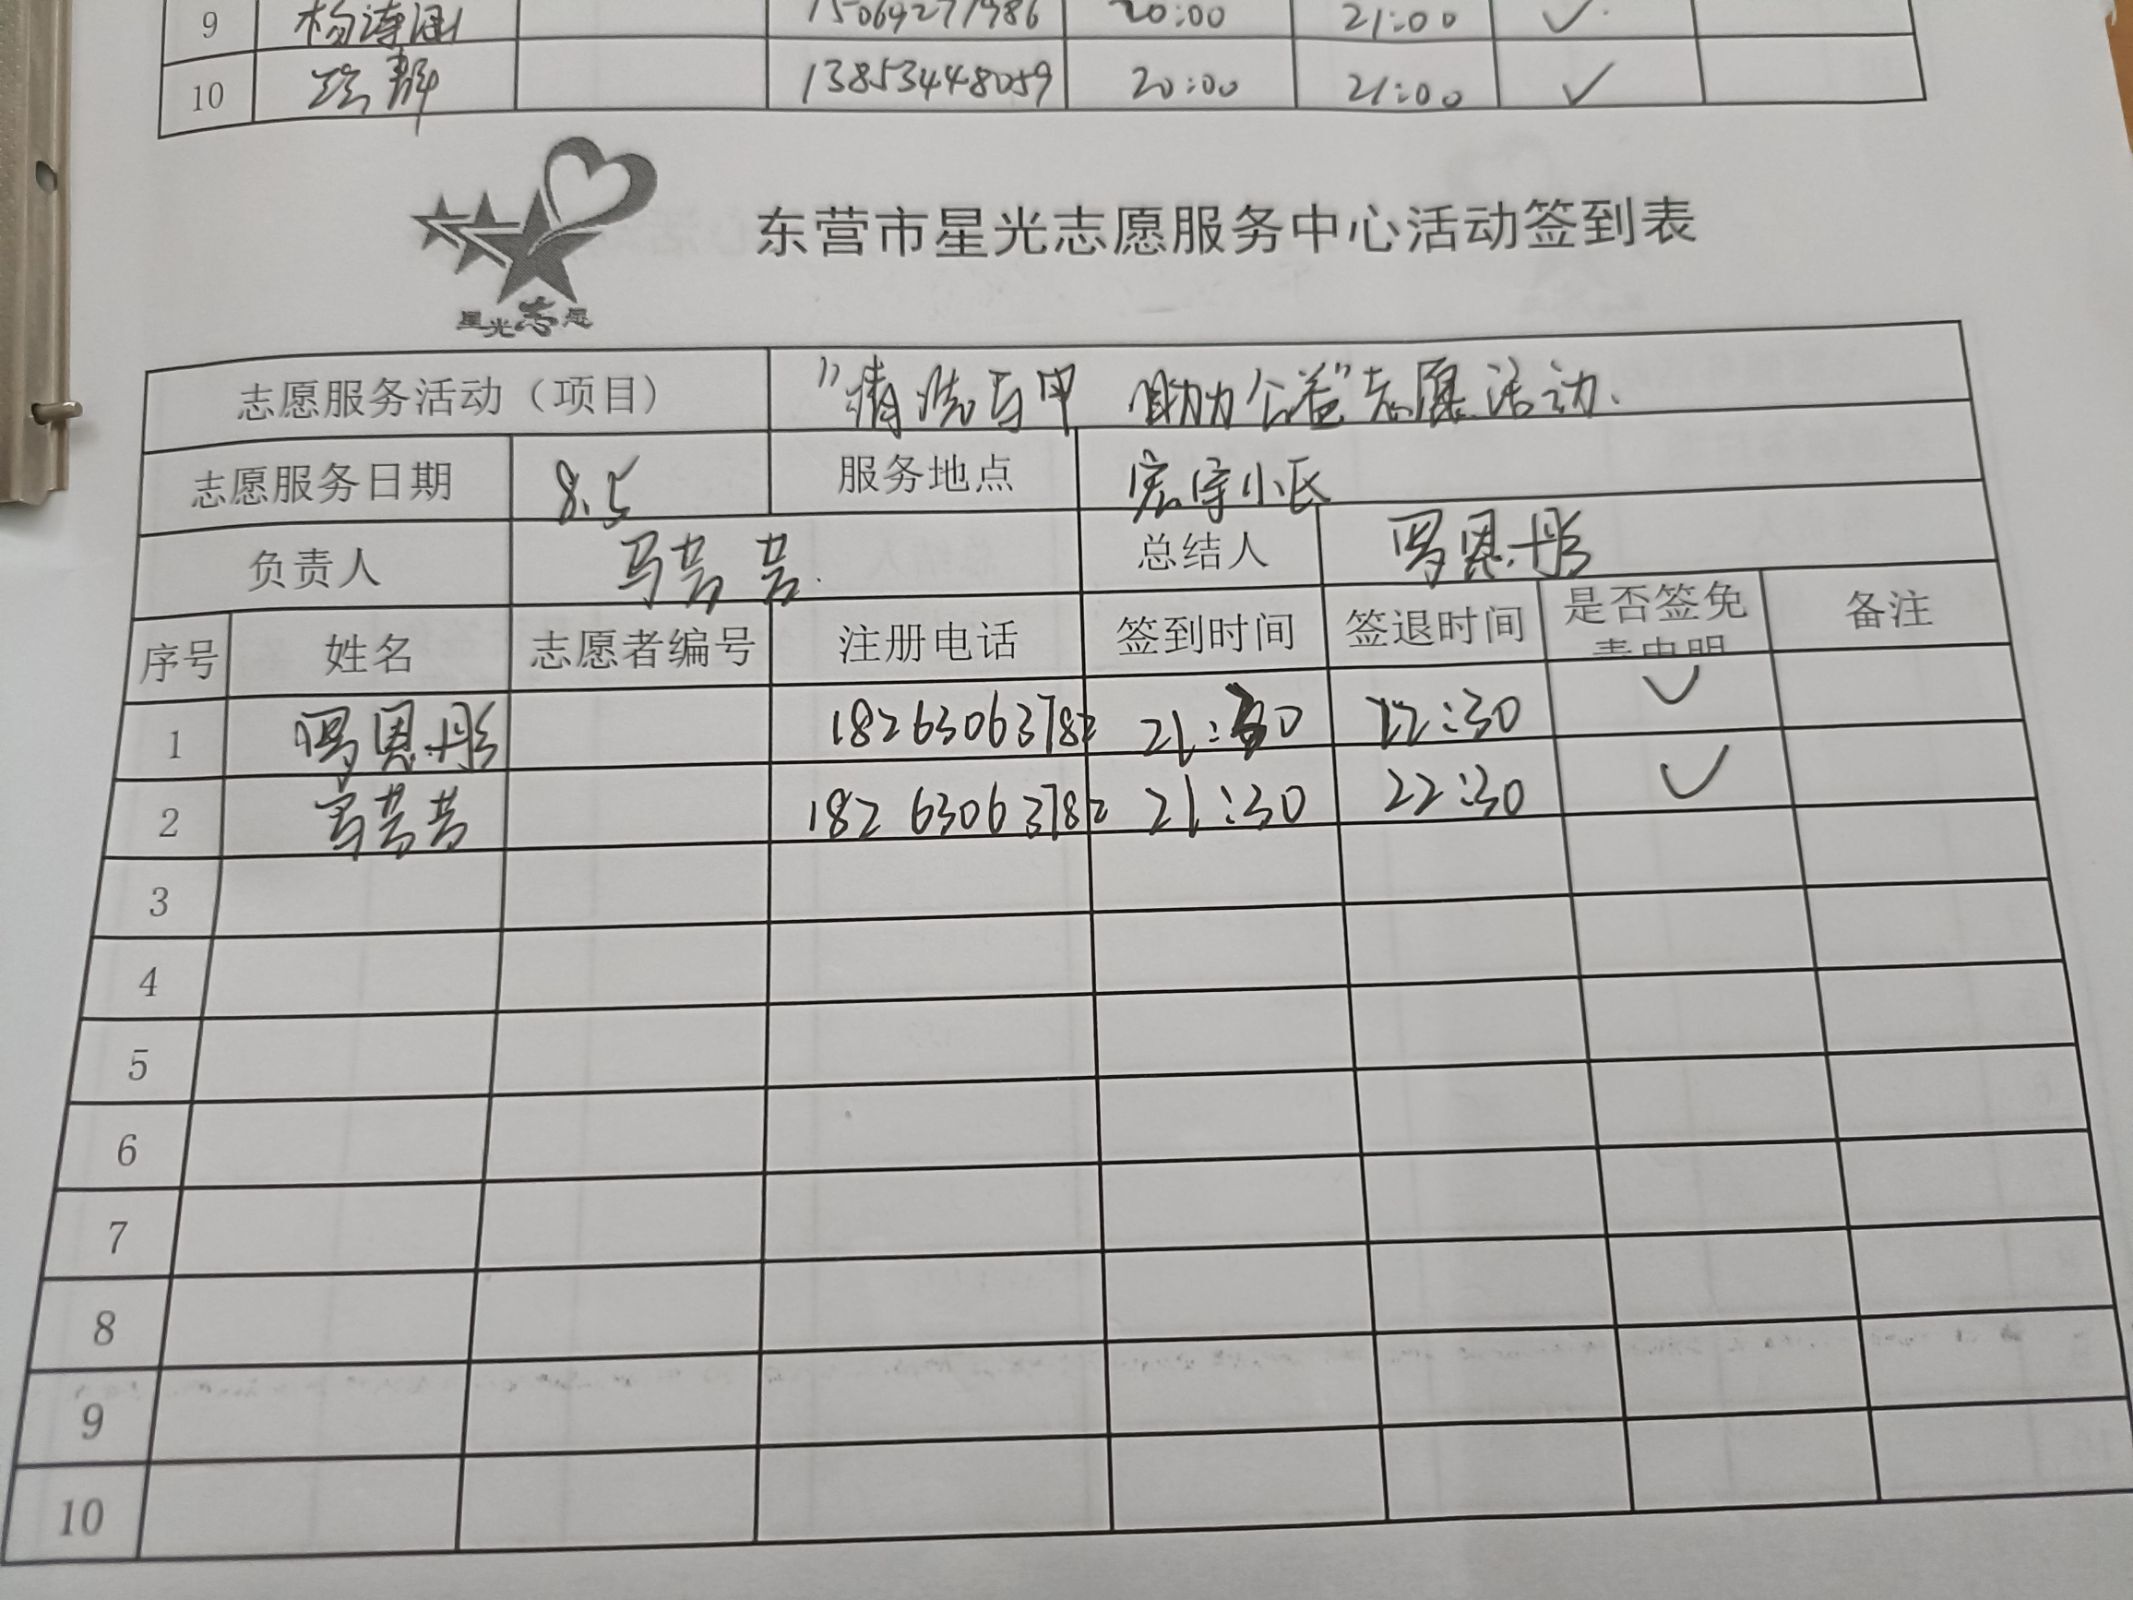 9 杨诗涵 15069271986 20:00 21:00 ✓
10 静 13853448059 20:00 21:00 ✓
星光志愿
东营市星光志愿服务中心活动签到表
志愿服务活动（项目） “清洗马甲 助力公益”志愿活动.
志愿服务日期 8.5 服务地点 宏宇小区
负责人 马芸芸. 总结人 罗恩彤
序号 姓名 志愿者编号 注册电话 签到时间 签退时间 是否签免责申明 备注
1 罗恩彤 18263063782 21:30 22:30 ✓
2 马芸芸 18263063782 21:30 22:30 ✓
3
4
5
6
7
8
9
10